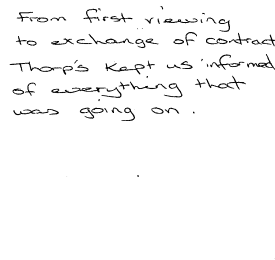 From first viewing
to exchange of contract
Thorp's kept us informed
of everything that
was going on.